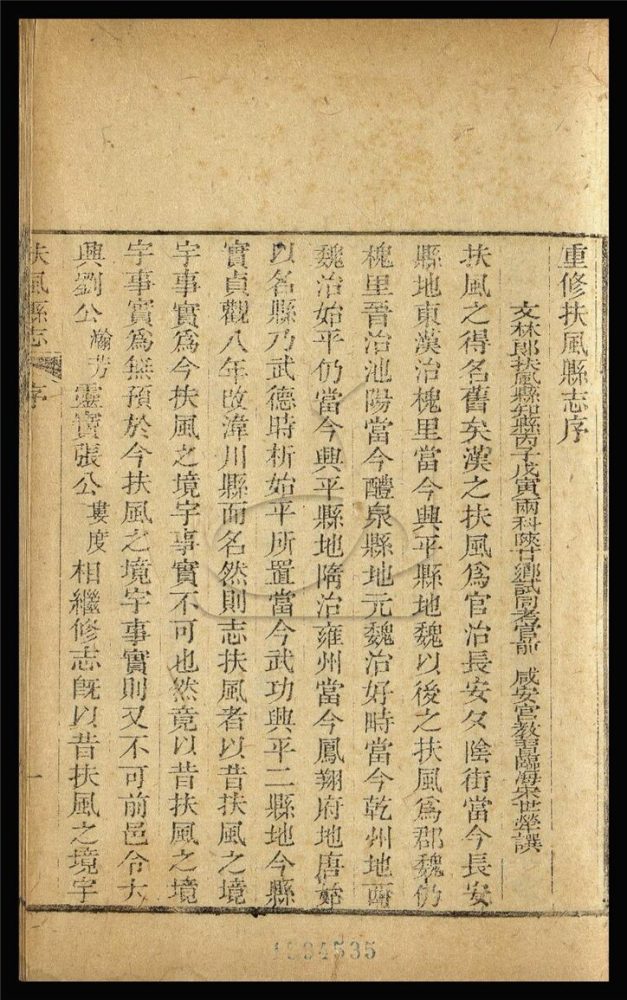 重修扶風縣志序
文林郎扶風縣知縣丙子戊寅兩科陝甘鄉試同考官前 咸安宮教習臨海宋世犖譔
扶風之得名舊矣漢之扶風爲官治長安夕陰街當今長安
縣地東漢治槐里當今興平縣地魏以後之扶風爲郡魏仍
槐里晉治池陽當今醴泉縣地元魏治好畤當今乾州地西
魏治始平仍當今興平縣地隋治雍州當今鳳翔府地唐
以名縣乃武德時析始平所置當今武功興平二縣地今縣
實貞觀八年改湋川縣而名然則志扶風者以昔扶風之境
宇事實爲今扶風之境宇事實不可也然竟以昔扶風之境
宇事實爲無預於今扶風之境宇事實則又不可前邑令大
興劉公瀚芳靈寶張公婁度相繼修志旣以昔扶風之境宇
扶風縣志 序 一
1534535